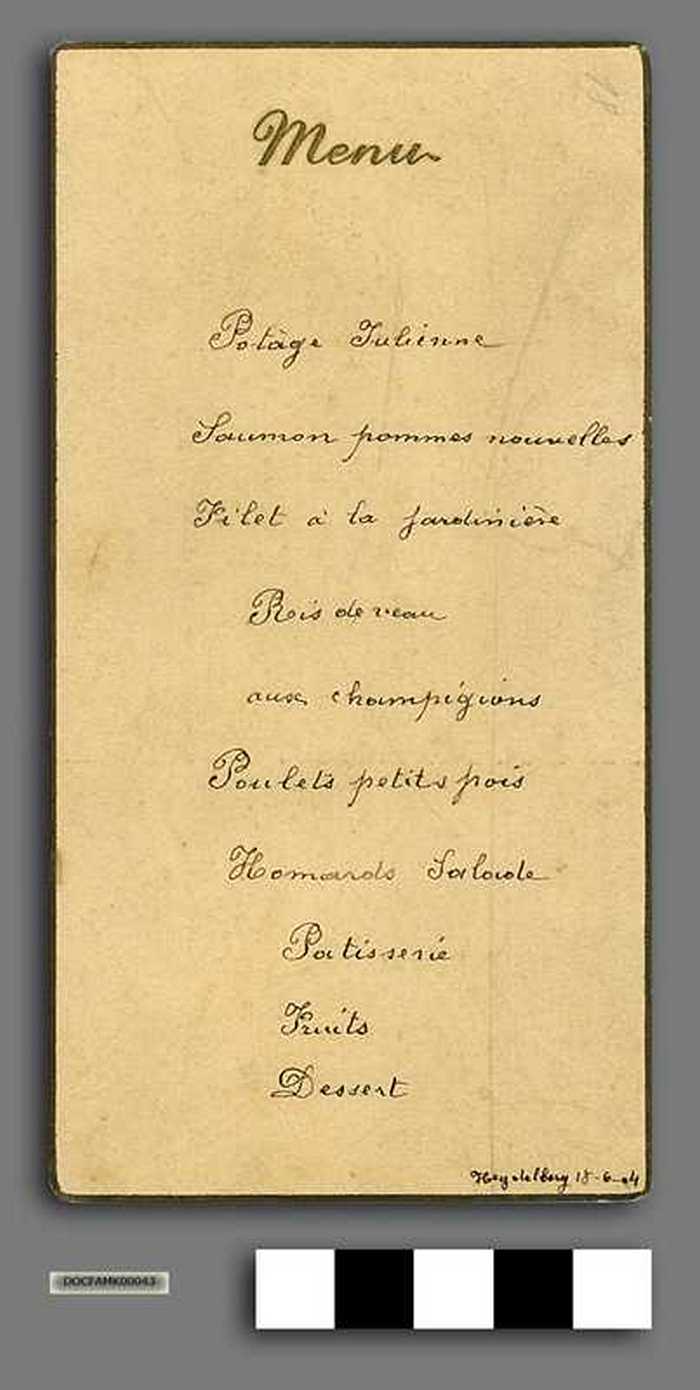 Menu
Potàge Julienne
Saumon pommes nouvelles
Filet à la jardinière
Ris de veau
aux champigions
Poulets petits pois
Homards Salade
Patisserie
Fruits
Dessert
Heydelberg 18-6-04
DOCFAMK00043